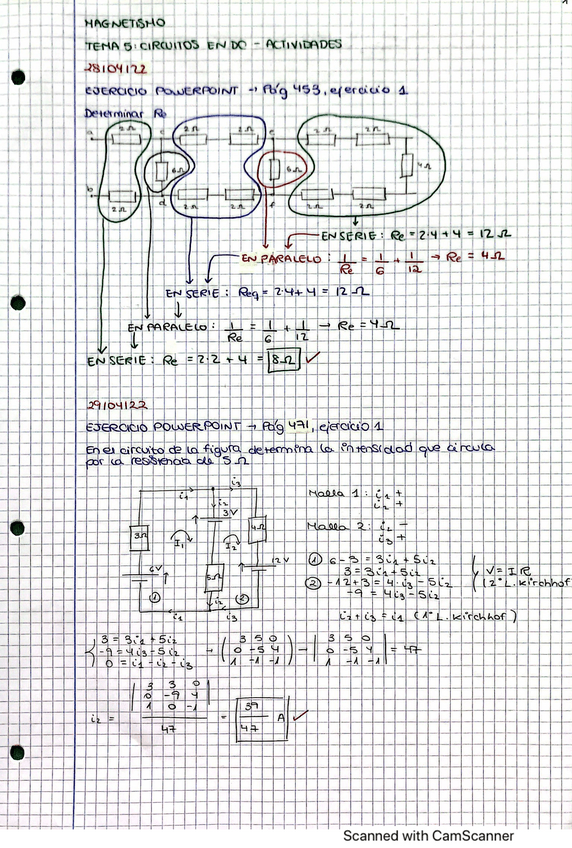 MAGNETISMO
TEMA 5: CIRCUITOS EN DC - ACTIVIDADES
28/04/22
EJERCICIO POWERPOINT → Pág 453, ejercicio 1
Determinar Re
a 2Ω c 2Ω 2Ω e 2Ω 2Ω
6Ω 6Ω 4Ω
b 2Ω d 2Ω 2Ω f 2Ω 2Ω
EN SERIE: Re = 2·4 + 4 = 12 Ω
EN PARALELO: 1/Re = 1/6 + 1/12 → Re = 4Ω
EN SERIE: Req = 2·4 + 4 = 12 Ω
EN PARALELO: 1/Re = 1/6 + 1/12 → Re = 4Ω
EN SERIE: Re = 2·2 + 4 = 8Ω ✓
29/04/22
EJERCICIO POWERPOINT → Pág 471, ejercicio 1
En el circuito de la figura determina la intensidad que circula
por la resistencia de 5Ω
i1 i3
i2
3V
3Ω I1 I2 4Ω
6V 5Ω 12V
① i2 ②
i1 i3
Malla 1: i1 +
i2 +
Malla 2: i2 -
i3 +
① 6-3 = 3i1 + 5i2
3 = 3i1 + 5i2
② -12+3 = 4·i3 - 5i2
-9 = 4i3 - 5i2
V = I·R
(2ª L. Kirchhof
i2 + i3 = i1 (1ª L. Kirchhof)
3 = 3i1 + 5i2
-9 = 4i3 - 5i2
0 = i1 - i2 - i3
→ (3 5 0
0 -5 4
1 -1 -1) → |3 5 0
0 -5 4
1 -1 -1| = 47
i2 = |3 3 0
0 -9 4
1 0 -1| / 47 = 39/47 A ✓
Scanned with CamScanner